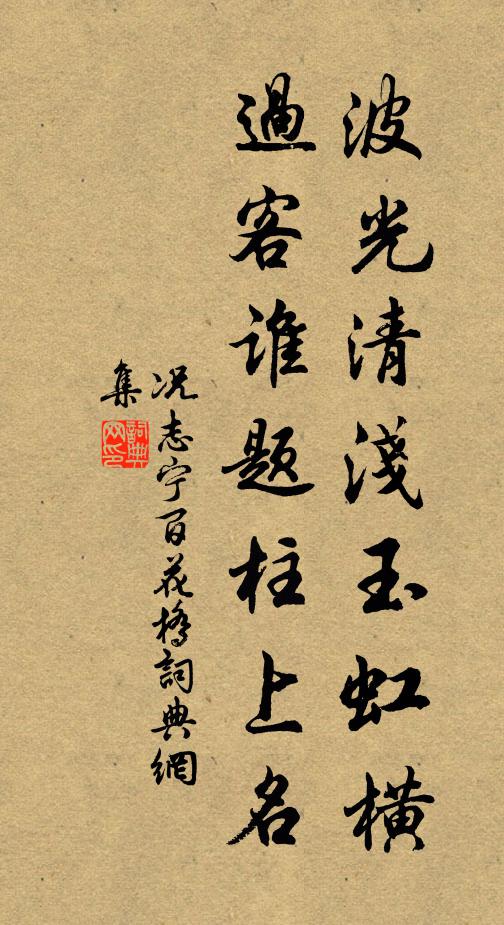 波光清淺玉虹橫
過客誰題柱上名
况志宁百花橋詞典網
集
詞典網印